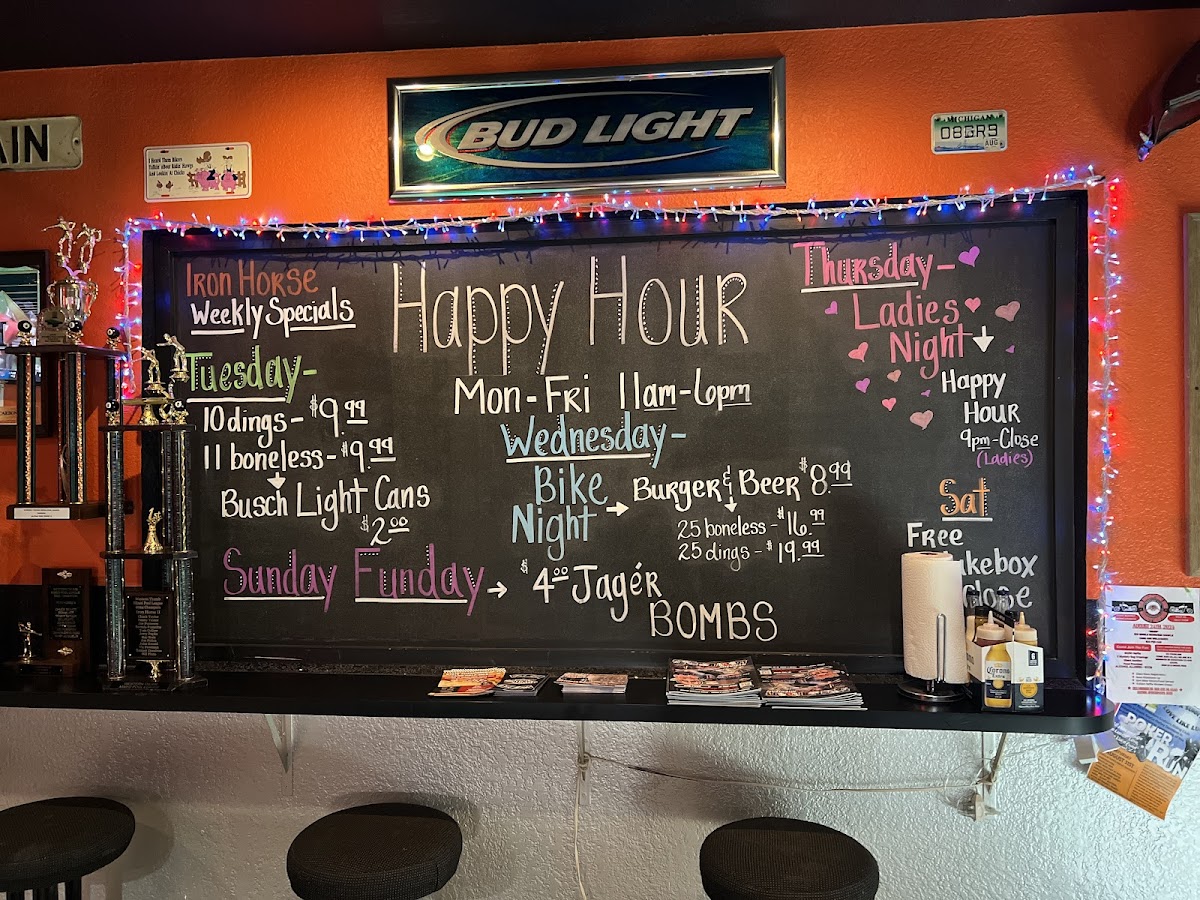 BUD LIGHT
AIN
I Heard Them Bikers
MICHIGAN
08GR9
AUG
IRON HORSE
Weekly Specials
Tuesday-
10 dings - $9.99
11 boneless - $9.99
Busch Light Cans
$2.00
Sunday Funday → $4.00 Jagér
BOMBS
Happy Hour
Mon-Fri 11am-6pm
Wednesday-
Bike
Night → Burger & Beer $8.99
25 boneless - $16.99
25 dings - $19.99
Thursday-
Ladies
Night
Happy
Hour
9pm-Close
(Ladies)
Sat
Free
ukebox
Close
Corona
POKER
RUN